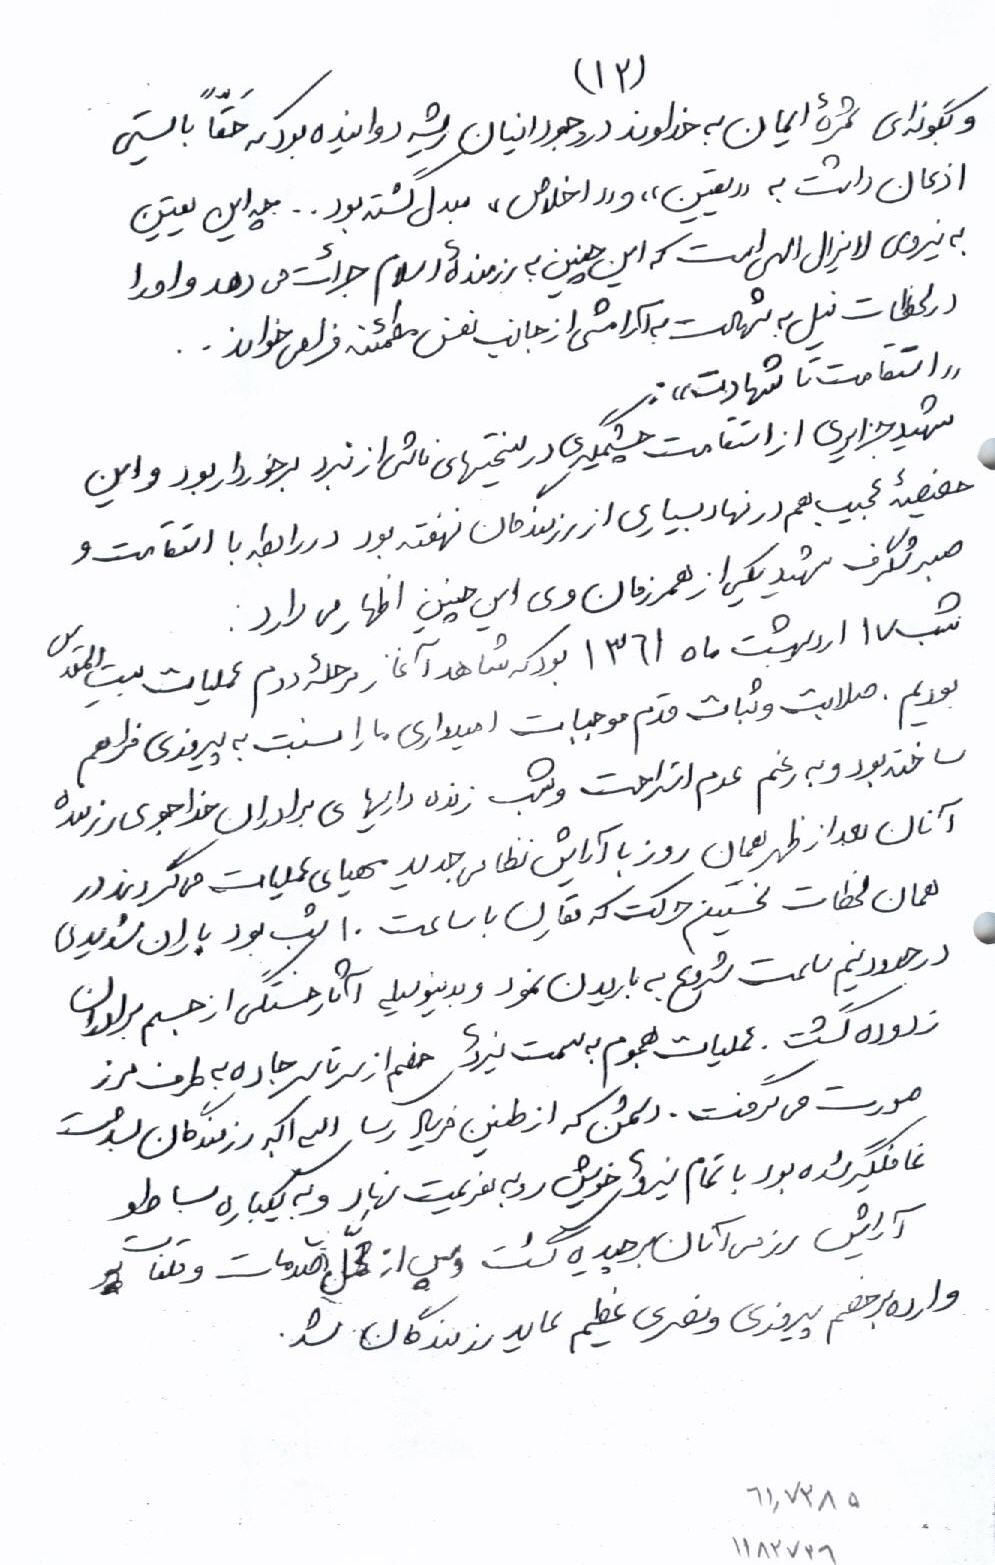 (۱۲)
و بگونه‌ای ثمرهٔ ایمان به خداوند در وجود انیان ریشه دوانیده بود که حَقّاً بایستی
اذعان داشت به «یقین»، و «اخلاص» مبدل گشته بود .. چه این یقین
به نیروی لایزال الهی است که این چنین به رزمندهٔ اسلام جرائت می دهد و او را
در لحظات نیل به شهادت به آرامشی از جانب نفس مطمئنه فرا می خواند . .
«استقامت تا شهادت» :
شهید جزایری از استقامت چشمگیری در سختیهای ناشی از نبرد برخوردار بود و این
خصیصهٔ عجیب هم در نهاد بسیاری از رزمندگان نهفته بود در رابطه با استقامت و
صبر شگرف شهید یکی از همرزمان وی این چنین اظهار می دارد :
شب ۱۷ اردیبهشت ماه ۱۳۶۱ بود که شاهد آغاز مرحلهٔ دوم عملیات بیت المقدس
بودیم . صلابت و ثبات قدم موجبات امیدواری ما را نسبت به پیروزی فراهم
ساخته بود و به رغم عدم استراحت و شب زنده داریهای برادران خداجوی رزمنده
آنان بعد از ظهر همان روز با آرایش نظامی جدید مهیای عملیات می گردیدند در
همان لحظات نخستین حرکت که مقارن با ساعت ۱۰ شب بود باران شدیدی
در حدود نیم ساعت شروع به باریدن نمود و بدینوسیله آثار خستگی از جسم برادران
زدوده گشت . عملیات هجوم به سمت نیروی خصم از سرتاسر جاده به طرف مرز
صورت می گرفت . دشمن که از طنین فریاد رسای الله اکبر رزمندگان بشدت
غافلگیر شده بود با تمام نیروی خویش رو به هزیمت نهاد و به یکباره بساط و
آرایش رزمی آنان برچیده گشت و پس از تحمّل صدمات و تلفات
وارده بر خصم پیروزی و نصری عظیم عاید رزمندگان شد .
۶۱،۷۳۸۵
۱۱۸۲۷۲۶